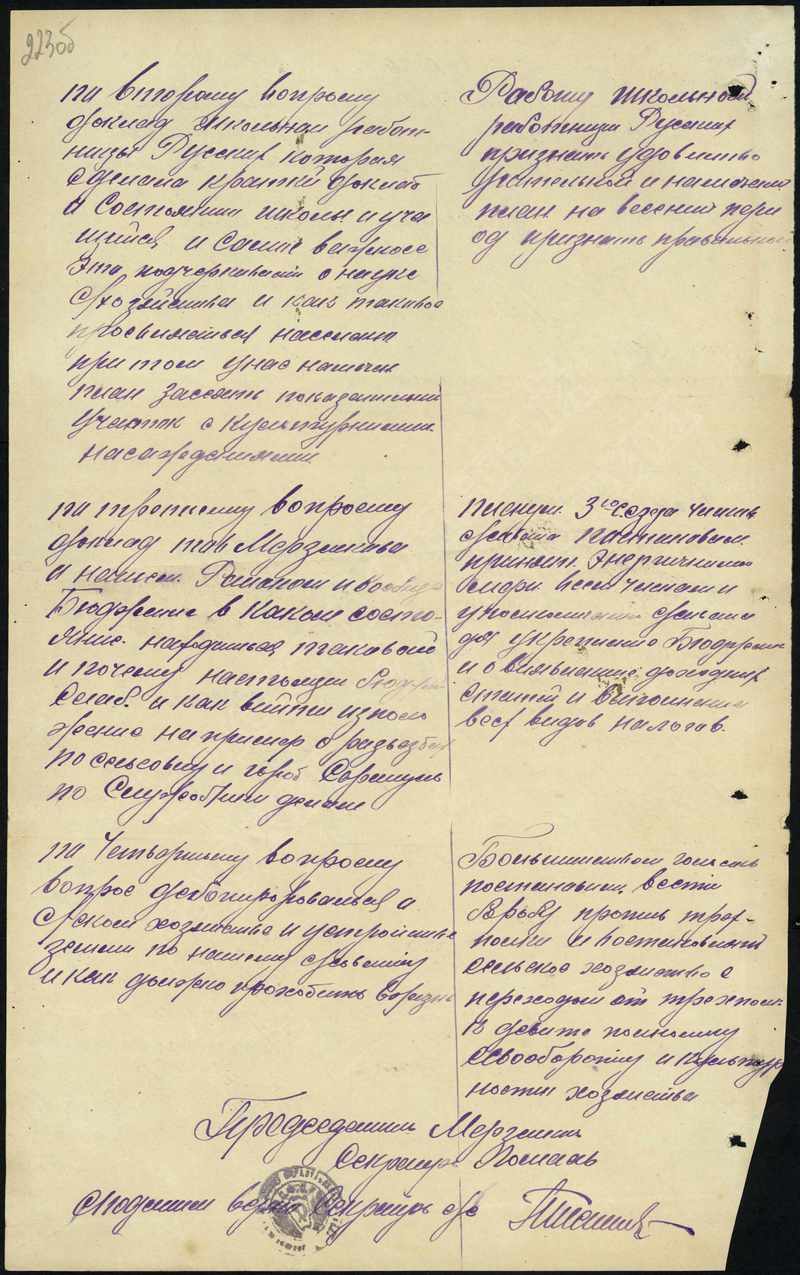 223об
по второму вопросу
доклад школьной работ-
ницы Русских которая
сделала краткий доклад
о состоянии школы и уча
щийся и самое важное
это подчеркивает о науке
с/хозяйства и как таковое
просвещаться население
при том у нас намечен
план засеять показательный
участок с культурными
насаждениями
Работу школьной
работницы Русских
признать удовлетво
рительной и намеченый
план на весений пери
од признать правильным
по третьему вопросу
доклад тов Мерзлякова
о нашем Районом и вообще
Бюджете в каком состо-
яние находиться таковой
и почему настоящий бюджет
слаб и как выйти из поло
жение на пример о разъездах
по сельсовету и город Сарапуль
по служебным делам
пленум 3го созыва членов
с/совета постановил
принять энергичные
меры всем членам и
уполномоченным с/совета
для укрепление Бюджета
и о выявлению доходных
статей и выполнении
всех видов налогов.
по четвертому вопросу
вопрос дебатировавшься о
с/ском хозяйстве и устройстве
земли по нашему с/совету
и как должно проходить в жизнь
Большинством голосов
постановили вести
борьбу против трех-
полки и постановили
сельское хозяйство с
переходом от трехполки
к девяти польному
севообороту и культур
ности хозяйства
Председатель Мерзляков
Секретарь
с подлиным верно Секретарь с/с